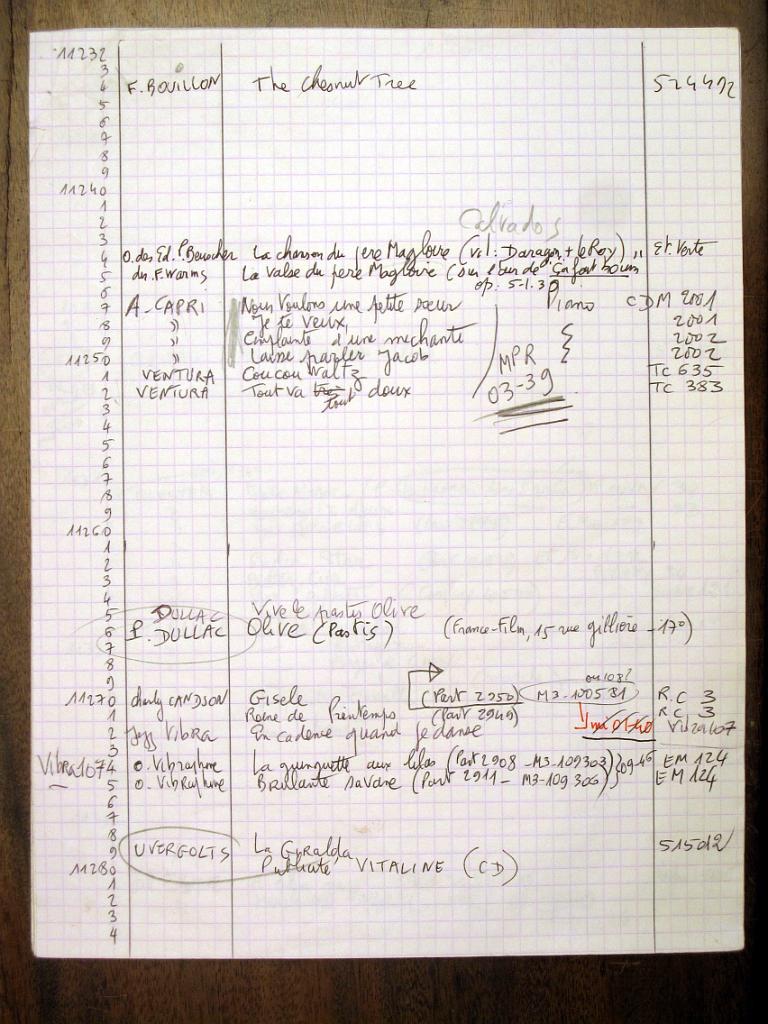 11232
3
4 F. BOUILLON The Chesnut Tree 524492
5
6
7
8
9
11240
1
2 Calvados
3
4 O. des Ed. P. Beuscher La chanson du père Magloire (vol: Daragon + le Roy) " Et. Verte
5 du. F. Warms La valse du père Magloire (sur l'air de "Ça fait boum
6 op. 5-1-39
7 A. CAPRI Nous voulons une petite sœur Piano CDM 2001
8 " Je te veux, 2001
9 " Complainte d'une méchante 2002
11250 " Laisse parler Jacob MPR 2002
1 VENTURA Coucou Waltz TC 635
2 VENTURA Tout va tout doux 03-39 TC 383
3
4
5
6
7
8
9
11260
1
2
3
4
5 DULLAC Vive le pastis Olive
6 P. DULLAC Olive (Pastis) (France-Film, 15 rue gillière - 17°)
7
8
9
ou 108?
11270 charly CANDSON Gisele (Part 2950) M3-100581 R.C 3
1 Reine de Printemps (Part 2949) R.C 3
2 Jazz Vibra En cadence quand je danse 01-40 Vib 29107
3
Vibra 1074 4 O. Vibraphone La guinguette aux lilas (Part 2908 - M3-109303) 09-46 EM 124
5 O. Vibraphone Brillante savane (Part 2911 - M3-109306) EM 124
6
7
8
9 UVERGOLTS La Giralda 515012
11280 Publicité VITALINE (CD)
1
2
3
4